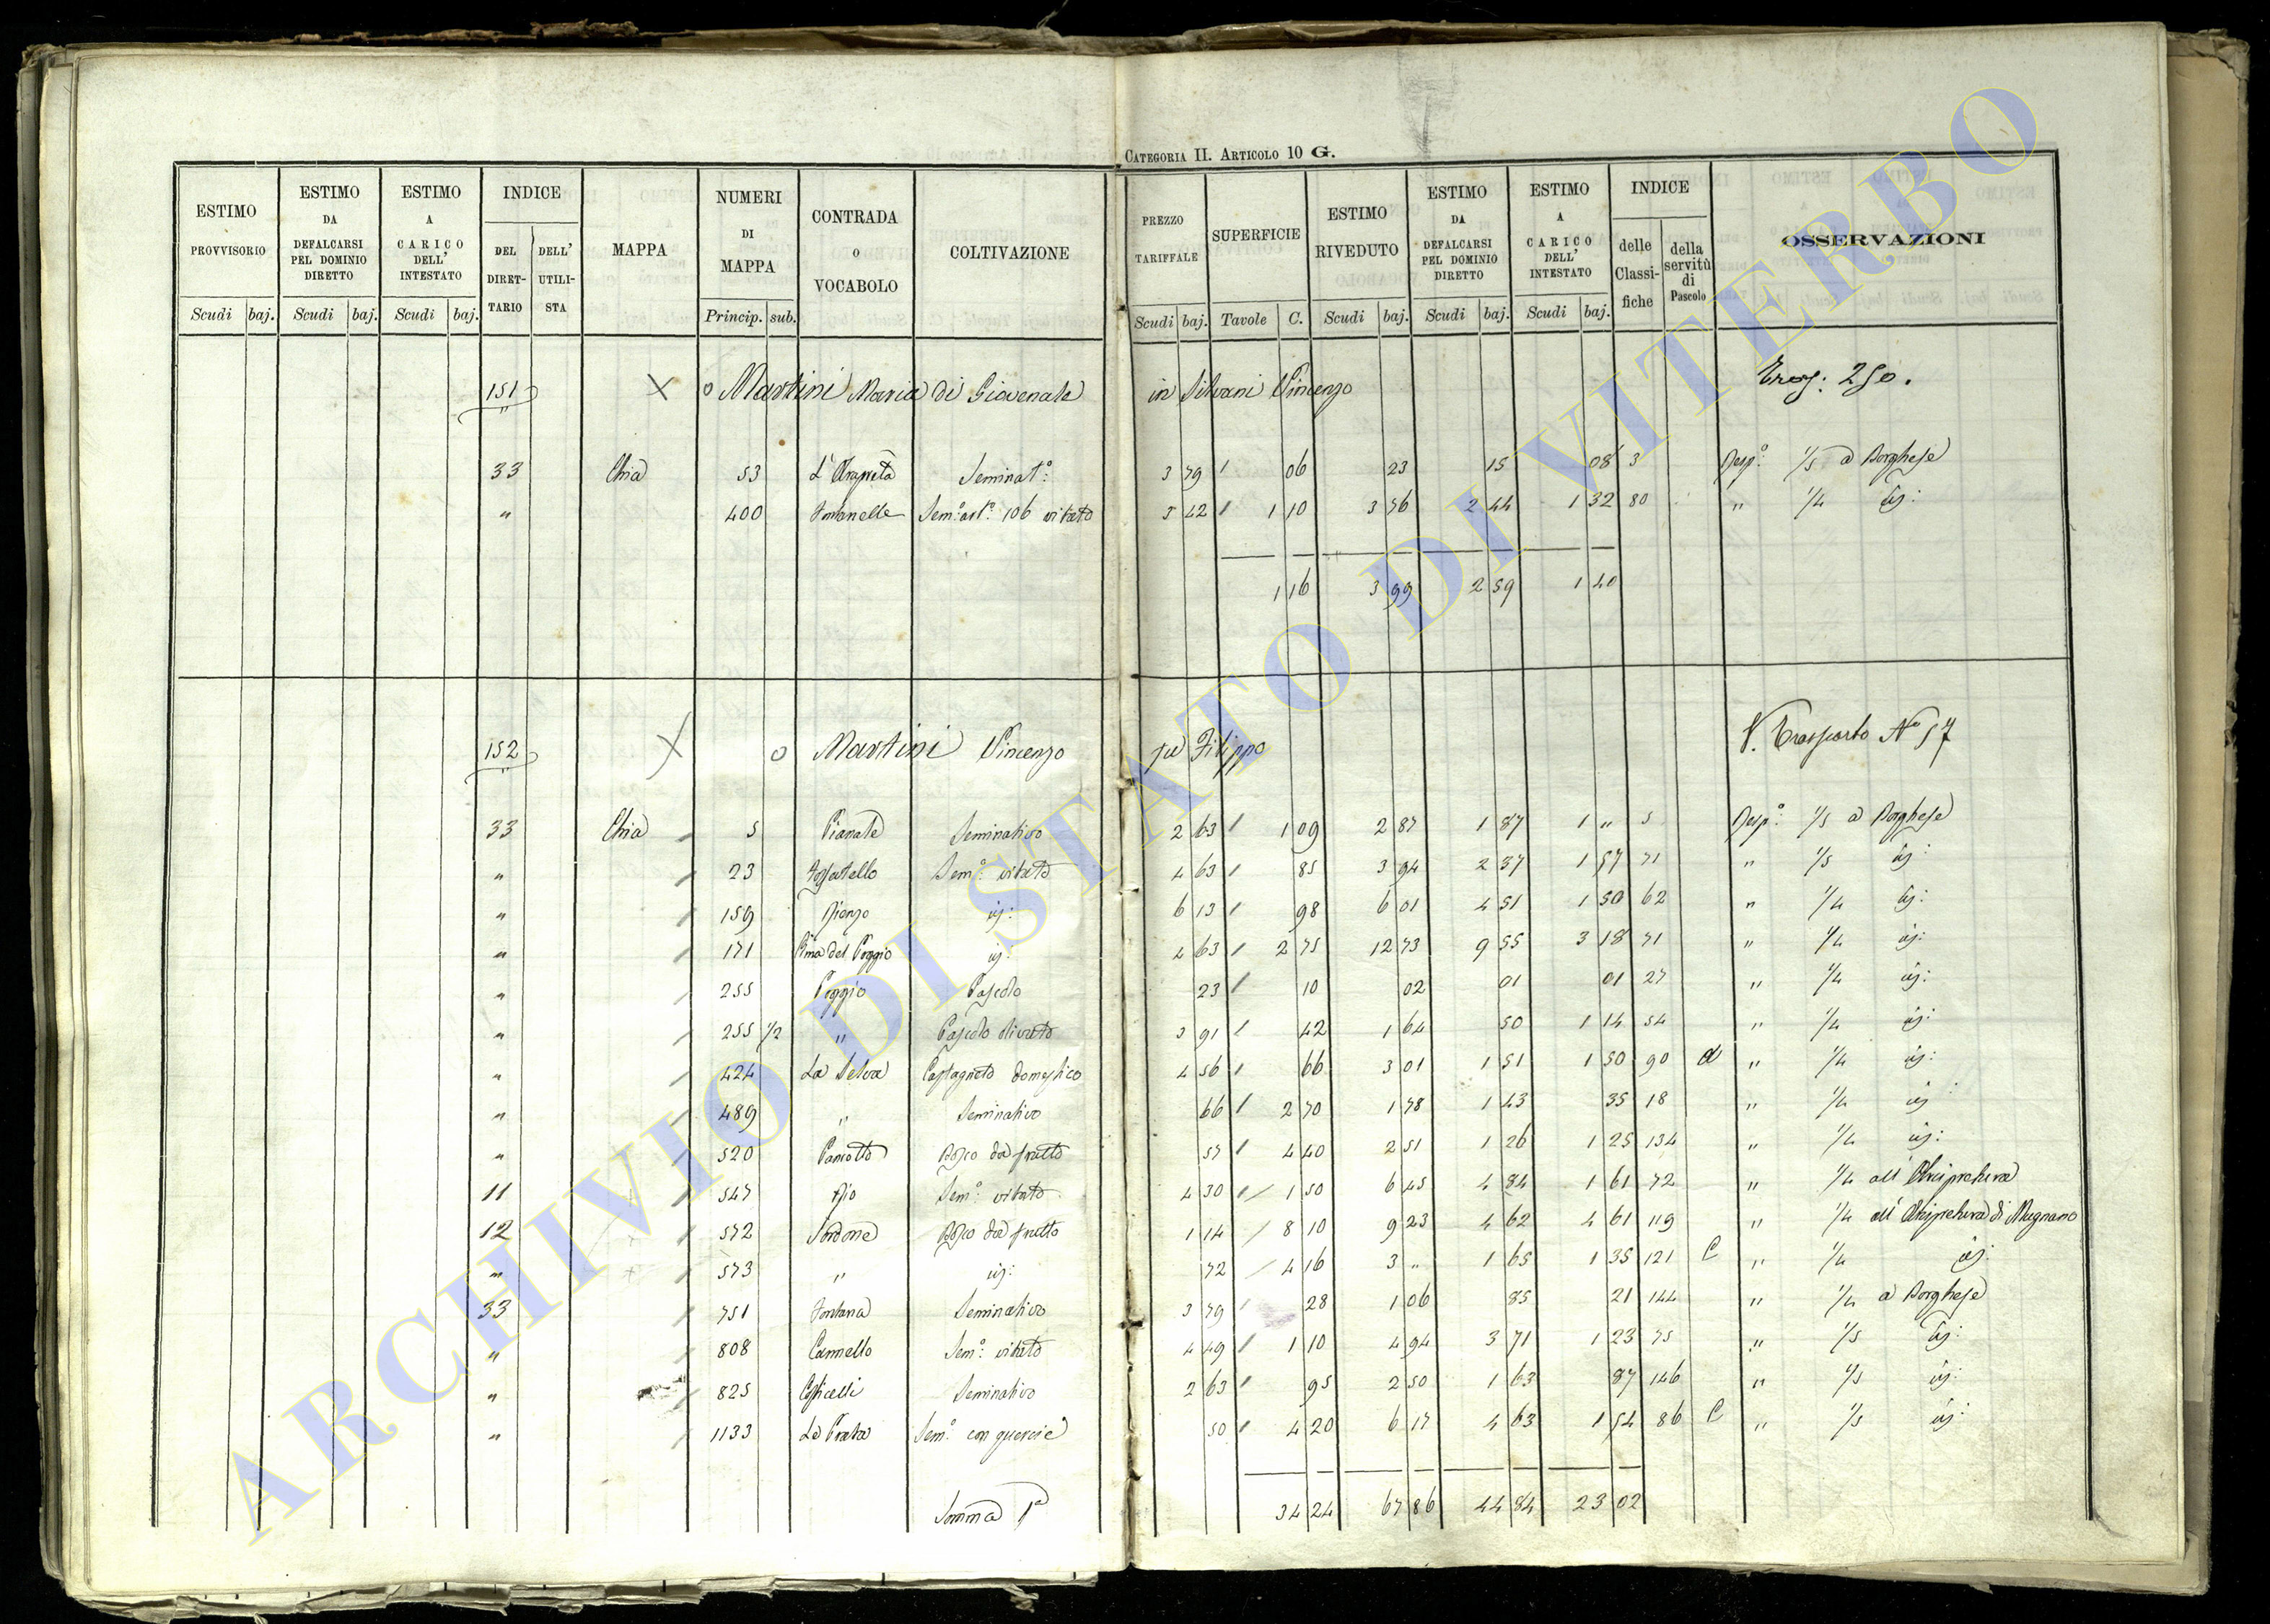 CATEGORIA II. ARTICOLO 10 G.
ESTIMO PROVVISORIO Scudi baj.
ESTIMO DA DEFALCARSI PEL DOMINIO DIRETTO Scudi baj.
ESTIMO A CARICO DELL' INTESTATO Scudi baj.
INDICE DEL DIRETTARIO DELL' UTILISTA
MAPPA
NUMERI DI MAPPA Princip. sub.
CONTRADA O VOCABOLO
COLTIVAZIONE
PREZZO TARIFFALE Scudi baj.
SUPERFICIE Tavole C.
ESTIMO RIVEDUTO Scudi baj.
ESTIMO DA DEFALCARSI PEL DOMINIO DIRETTO Scudi baj.
ESTIMO A CARICO DELL' INTESTATO Scudi baj.
INDICE delle Classifiche della servitù di Pascolo
OSSERVAZIONI
151 X o Martini Maria di Giovenale in Silvani Vincenzo 250.
33 Chia 53 Seminat.º 3 79 06 23 15 08 3 Risp.º 1/5 a Borghese
" 400 Fontanelle Sem.º art.º 106 vitato 3 42 1 10 3 76 2 44 1 32 80 " 1/4 id:
1 16 3 99 2 59 1 40
152 X o Martini Vincenzo fu Filippo V. Trasporto Nº 57
33 Chia 5 Pianale Seminativo 2 63 1 09 2 87 1 87 1 " 5 Risp.º 1/5 a Borghese
" 23 Sem.º vitato 4 63 85 3 94 2 37 1 57 71 " 1/5 id:
" 159 id: 6 13 98 6 01 4 51 1 50 62 " 1/4 id:
" 171 Cima del Poggio id: 4 63 2 75 12 73 9 55 3 18 71 " 1/4 id:
" 255 Poggio Pascolo 23 10 02 01 01 27 " 1/4 id:
" 255 1/2 " Pascolo olivato 3 91 42 1 64 50 1 14 54 " 1/4 id:
" 424 La Selva Castagneto domestico 4 56 66 3 01 1 51 1 50 90 a " 1/4 id:
" 489 " Seminativo 66 2 70 1 78 1 43 35 18 " 1/4 id:
" 520 Bosco da frutto 57 4 40 2 51 1 26 1 25 134 " 1/4 id:
11 547 Rio Sem.º vitato 4 30 1 50 6 45 4 84 1 61 72 " 1/4 all'Arcipretura
12 572 Bosco da frutto 1 14 8 10 9 23 4 62 4 61 119 " 1/4 all'Arcipretura di Mugnano
" 573 " id: 72 4 16 3 " 1 65 1 35 121 C " 1/4 id:
33 751 Fontana Seminativo 3 79 28 1 06 85 21 144 " 1/4 a Borghese
" 808 Cannello Sem.º vitato 4 49 1 10 4 94 3 71 1 23 75 " 1/5 id:
" 825 Seminativo 2 63 95 2 50 1 63 87 146 " 1/5 id:
" 1133 Le Prata Sem.º con quercie 50 4 20 6 17 4 63 1 54 86 C " 1/5 id:
Somma 1ª 34 24 67 86 44 84 23 02
ARCHIVIO DI STATO DI VITERBO